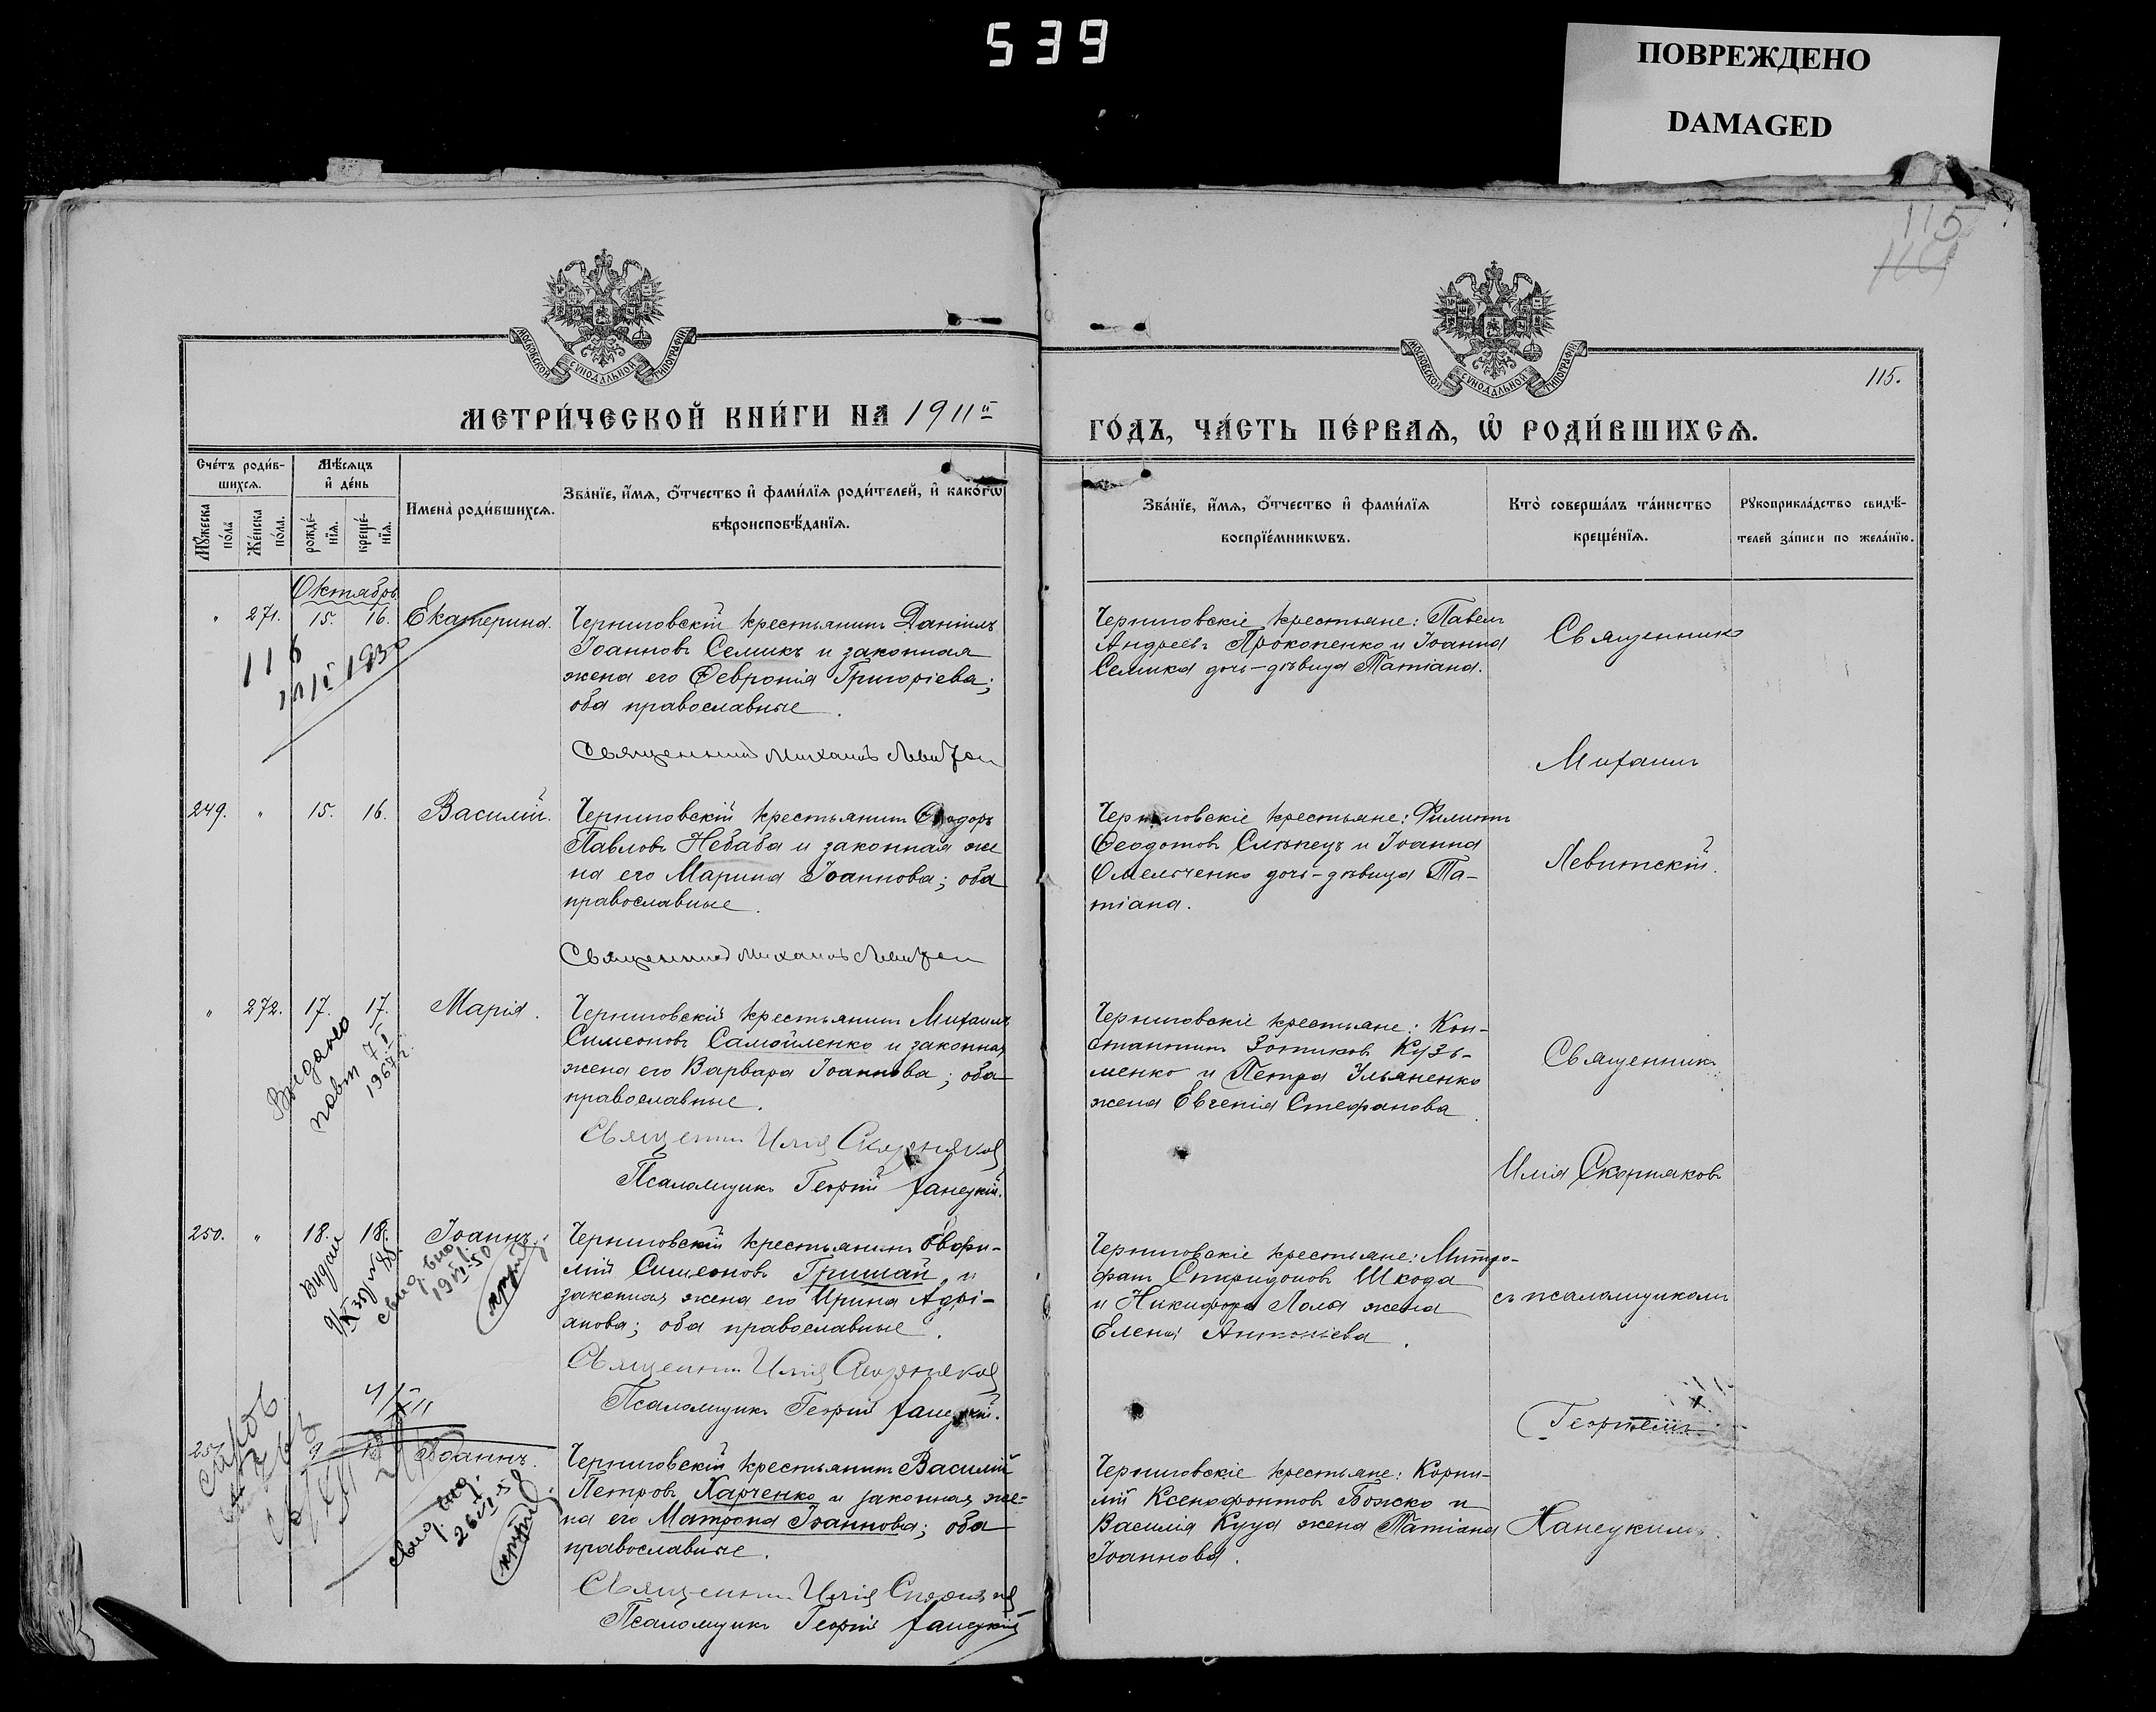 539
ПОВРЕЖДЕНО
DAMAGED
115
МОСКОВСКОЙ СѴНОДАЛЬНОЙ ТИПОГРАФІИ
МОСКОВСКОЙ СѴНОДАЛЬНОЙ ТИПОГРАФІИ
115.
МЕТРИ́ЧЕСКОЙ КНИ́ГИ НА 1911й
ГО́ДЪ, ЧА́СТЬ ПЕ́РВАѦ, Ѡ҆ РОДИ́ВШИХСѦ.
Сче́тъ роди́в-
шихсѧ.
Мѣ́сѧцъ
и҆ де́нь
Мꙋ́жеска по́ла
Же́нска по́ла.
рожде́-
нїѧ.
креще́-
нїѧ.
Имена̀ роди́вшихсѧ.
Зва́нїе, и҆́мѧ, ѻ҆́тчество и҆ фами́лїѧ роди́телей, и҆ како́гѡ
вѣроисповѣ́данїѧ.
Зва́нїе, и҆́мѧ, ѻ҆́тчество и҆ фами́лїѧ
воспрїе́мникѡвъ.
Кто̀ соверша́лъ та́инство
креще́нїѧ.
Рꙋкоприкла́дство свидѣ́-
телей за́писи по жела́нїю.
Октябрь
" 271. 15. 16. Екатерина.
Черниговскій крестьянинъ Даніилъ
Іоанновъ Семикъ и законная
жена его Февронія Григоріева;
оба православные.
Священникъ Михаилъ
Черниговскіе крестьяне: Павелъ
Андреевъ Прокопенко и Іоанна
Семика дочь-дѣвица Татіана.
Священникъ
Михаилъ
249. " 15. 16. Василій.
Черниговскій крестьянинъ Ѳеодоръ
Павловъ Небаба и законная же
на его Марина Іоаннова; оба
православные.
Священникъ Михаилъ
Черниговскіе крестьяне: Филиппъ
Ѳеодотовъ Слѣпецъ и Іоанна
Омельченко дочь-дѣвица Та-
тіана.
Левитскій.
" 272. 17. 17. Марія.
Выдано
повт 7/I
1967 г.
Черниговскій крестьянинъ Михаилъ
Симеоновъ Самойленко и законная
жена его Варвара Іоаннова; оба
православные.
Священникъ Илія Скорняковъ
Псаломщикъ Георгій Ханецкій.
Черниговскіе крестьяне: Кон-
стантинъ Зотиковъ Кузь-
менко и Петра Ульяненко
жена Евгенія Стефанова
Священникъ
Илія Скорняковъ
250. " 18. 18. Іоаннъ.
Черниговскій крестьянинъ Евфи-
мій Симеоновъ Гришай и
законная жена его Ирина Адрі-
анова; оба православные.
Священникъ Илія Скорняковъ
Псаломщикъ Георгій Ханецкій.
Черниговскіе крестьяне: Митро-
фанъ Спиридоновъ Шкода
и Никифора Лола жена
Елена Антоніева.
съ псаломщикомъ
Георгіемъ
Іоаннъ.
Черниговскій крестьянинъ Василій
Петровъ Харченко и законная же-
на его Матрона Іоаннова; оба
православные.
Священникъ Илія
Псаломщикъ Георгій Ханецкій
Черниговскіе крестьяне: Корни-
лій Ксенофонтовъ Божко и
Василія Куца жена Татіана
Іоаннова.
Ханецкимъ.